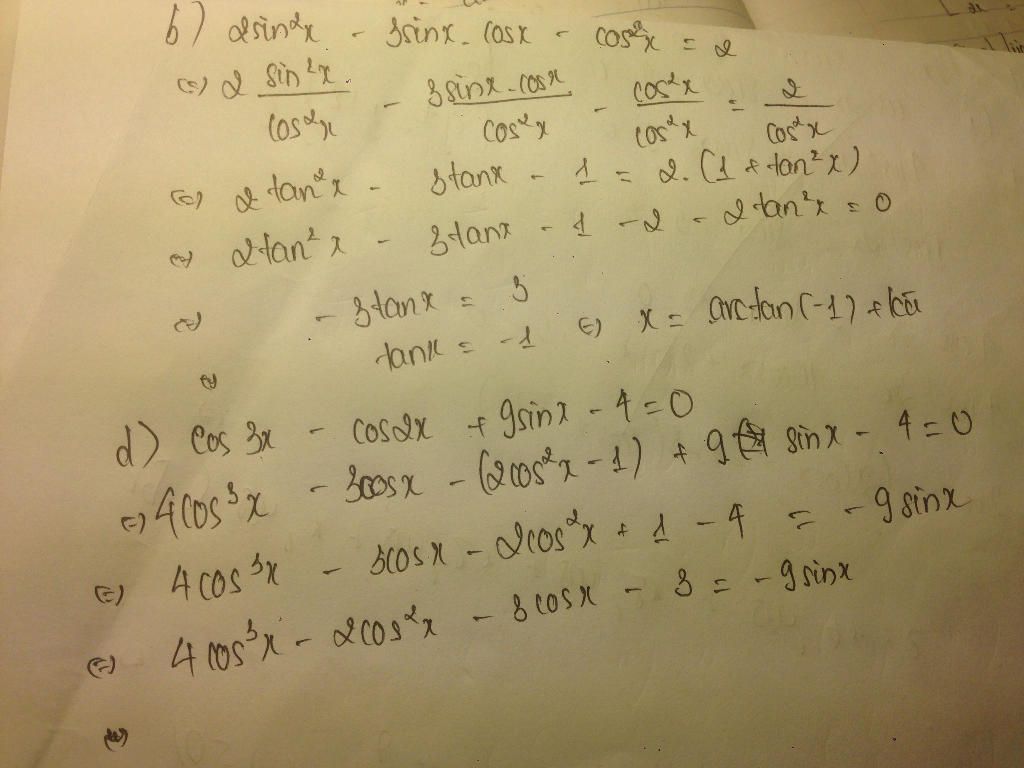 b) 2sin²x - 3sinx. cosx - cos²x = 2
(=) 2 sin²x/cos²x - 3sinx.cosx/cos²x - cos²x/cos²x = 2/cos²x
(=) 2tan²x - 3tanx - 1 = 2.(1 + tan²x)
(=) 2tan²x - 3tanx - 1 - 2 - 2tan²x = 0
(=) - 3tanx = 3
(=) tanx = -1 (=) x = arctan(-1) + kπ
d) cos 3x - cos2x + 9sinx - 4 = 0
(=) 4cos³x - 3cosx - (2cos²x - 1) + 9 sinx - 4 = 0
(=) 4cos³x - 3cosx - 2cos²x + 1 - 4 = -9sinx
(=) 4cos³x - 2cos²x - 3cosx - 3 = -9sinx
(=)